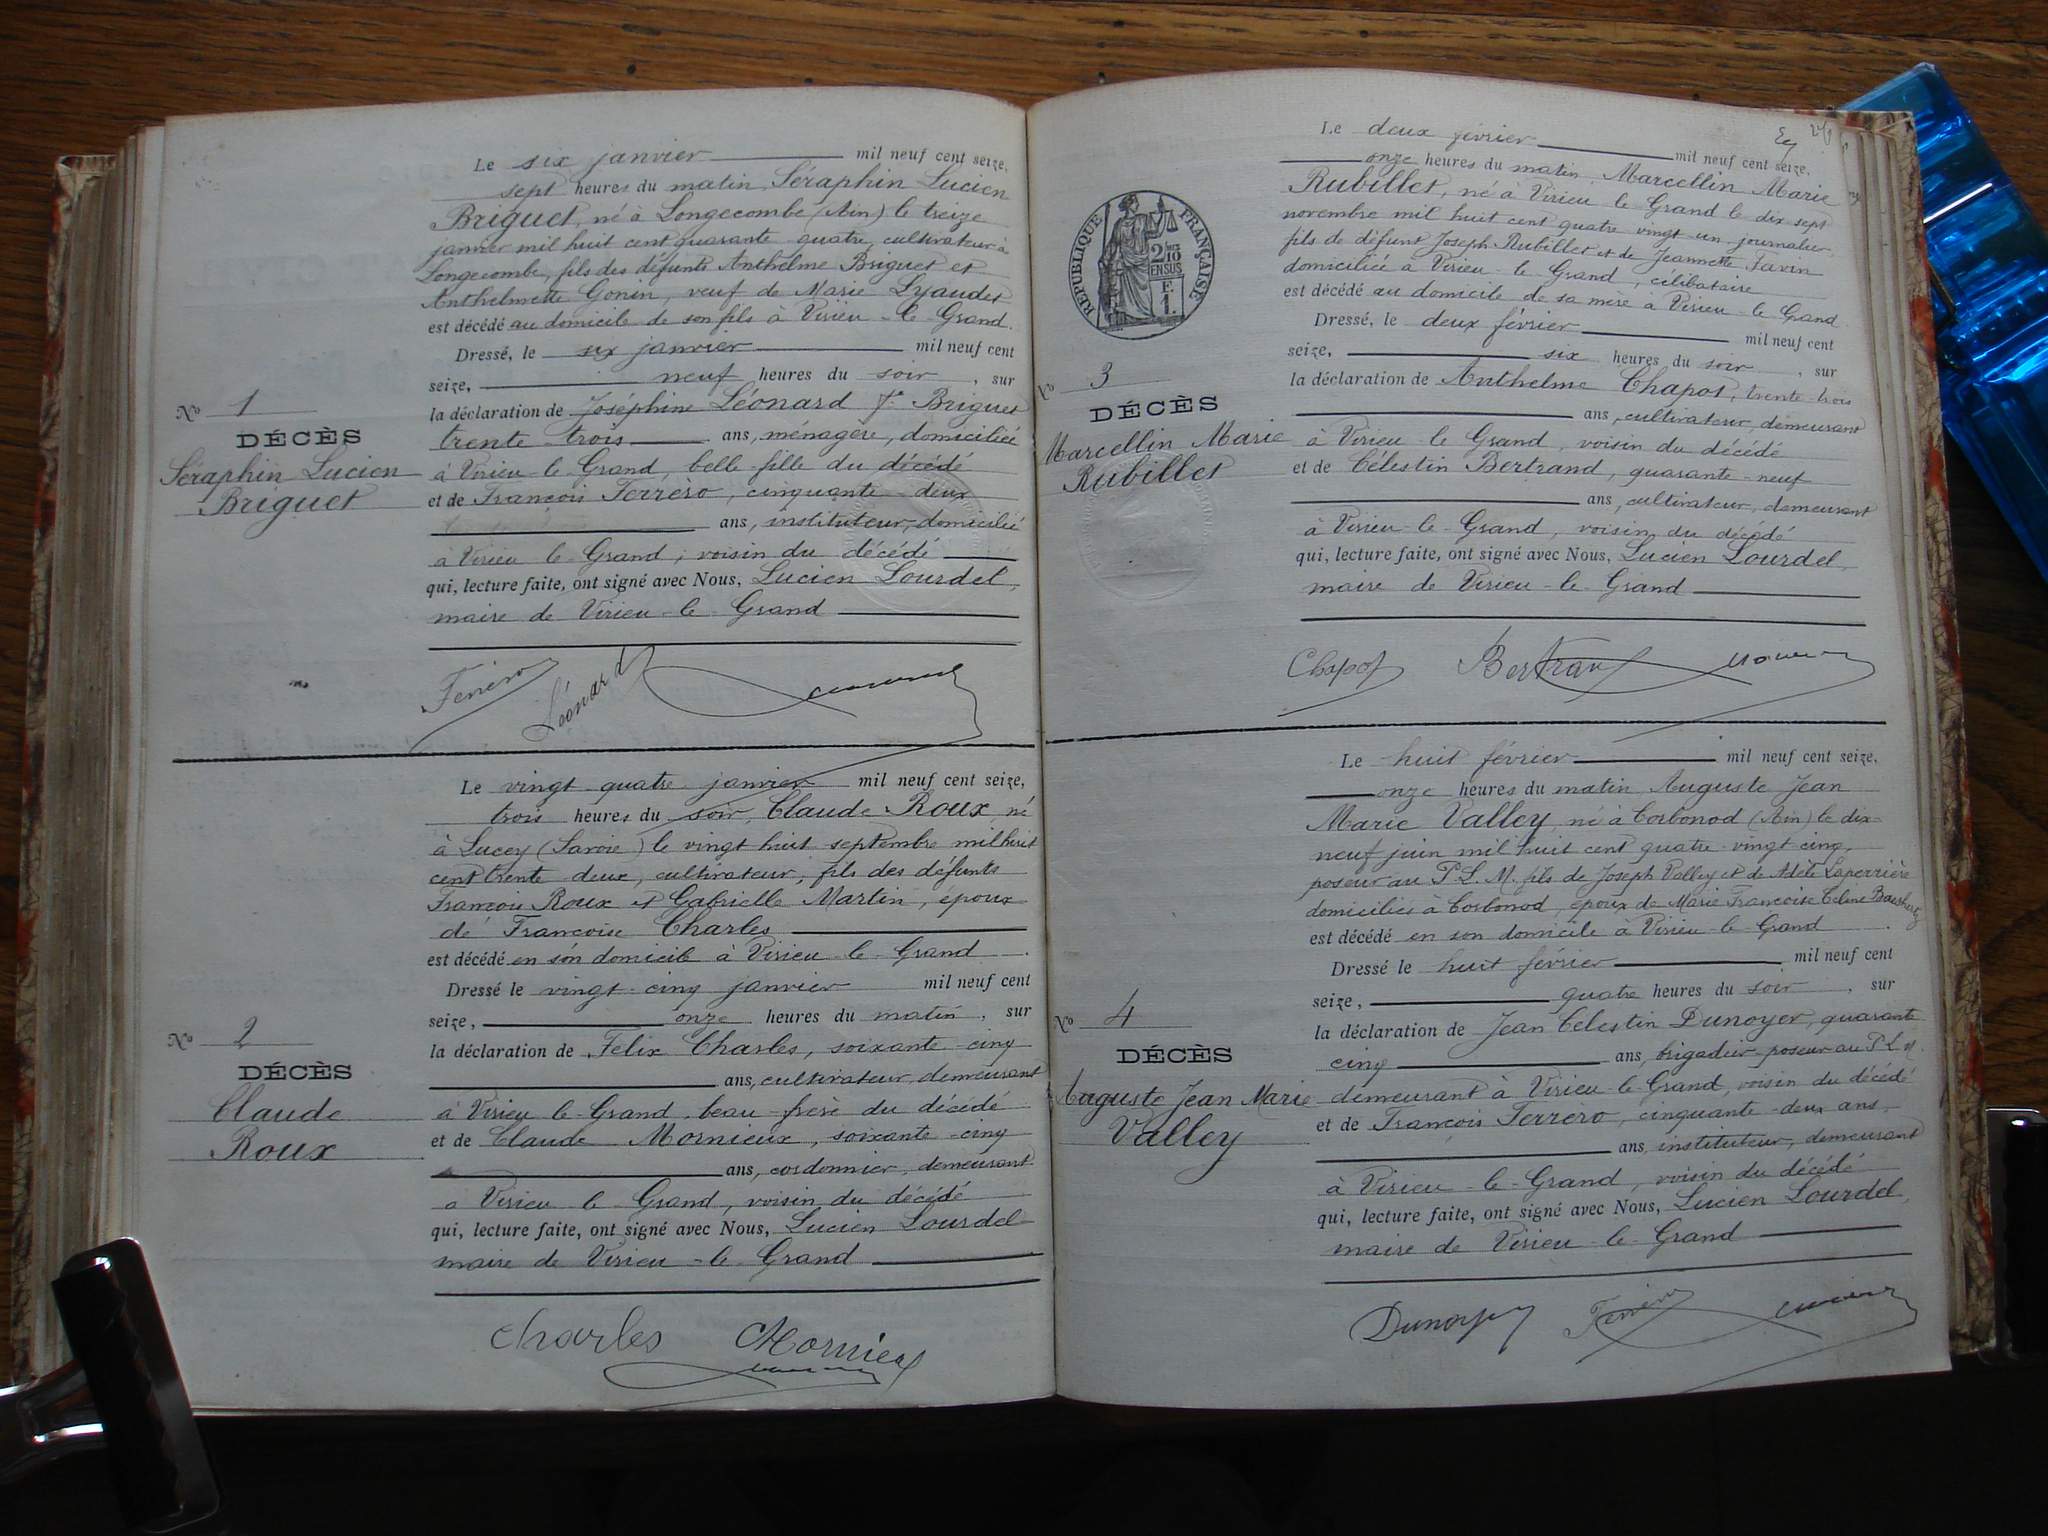 Le six janvier mil neuf cent seize,
sept heures du matin, Séraphin Lucien
Briguet, né à Longecombe (Ain) le treize
janvier mil huit cent quarante quatre, cultivateur à
Longecombe, fils des défunts Anthelme Briguet et
Anthelmette Gonin, veuf de Marie Lyaudet
est décédé au domicile de son fils à Virieu-le-Grand.
Dressé, le six janvier mil neuf cent
seize, neuf heures du soir, sur
la déclaration de Joséphine Léonard fe Briguet
trente-trois ans, ménagère, domiciliée
à Virieu-le-Grand, belle-fille du décédé
et de François Ferrero, cinquante-deux
ans, instituteur, domicilié
à Virieu le Grand, voisin du décédé
qui, lecture faite, ont signé avec Nous, Lucien Lourdel,
maire de Virieu-le-Grand
No 1
DÉCÈS
Séraphin Lucien
Briguet
Ferrero Léonard
Le vingt quatre janvier mil neuf cent seize,
trois heures du soir, Claude Roux, né
à Lucey (Savoie) le vingt huit septembre mil huit
cent trente deux, cultivateur, fils des défunts
François Roux et Gabrielle Martin, époux
de Françoise Charles
est décédé en son domicile à Virieu-le-Grand.
Dressé le vingt-cinq janvier mil neuf cent
seize, onze heures du matin, sur
la déclaration de Félix Charles, soixante-cinq
ans, cultivateur, demeurant
à Virieu le-Grand, beau-frère du décédé
et de Claude Mornieux, soixante-cinq
ans, cordonnier, demeurant
à Virieu le Grand, voisin du décédé
qui, lecture faite, ont signé avec Nous, Lucien Lourdel
maire de Virieu-le-Grand
No 2
DÉCÈS
Claude
Roux
Charles Mornieux
Le deux février mil neuf cent seize,
onze heures du matin, Marcellin Marie
Rubillet, né à Virieu le Grand le dix sept
novembre mil huit cent quatre vingt un, journalier,
fils de défunt Joseph Rubillet et de Jeannette Favin
domiciliée à Virieu-le-Grand, célibataire
est décédé au domicile de sa mère à Virieu-le-Grand
Dressé, le deux février mil neuf cent
seize, six heures du soir, sur
la déclaration de Anthelme Chapot, trente-trois
ans, cultivateur, demeurant
à Virieu-le-Grand, voisin du décédé
et de Célestin Bertrand, quarante-neuf
ans, cultivateur, demeurant
à Virieu-le-Grand, voisin du décédé
qui, lecture faite, ont signé avec Nous, Lucien Lourdel,
maire de Virieu-le-Grand
RÉPUBLIQUE FRANÇAISE
2/10
EN SUS
F.
1.
No 3
DÉCÈS
Marcellin Marie
Rubillet
Chapot Bertrand
Le huit février mil neuf cent seize,
onze heures du matin Auguste Jean
Marie Valley, né à Corbonod (Ain) le dix-
neuf juin mil huit cent quatre-vingt cinq,
poseur au P.L.M. fils de Joseph Valley et de Adèle Laperrière
domiciliés à Corbonod, époux de Marie Françoise Celine
est décédé en son domicile à Virieu-le-Grand.
Dressé le huit février mil neuf cent
seize, quatre heures du soir, sur
la déclaration de Jean Célestin Dunoyer, quarante
cinq ans, brigadier-poseur au P.L.M.
demeurant à Virieu-le-Grand, voisin du décédé
et de François Ferrero, cinquante-deux ans
ans, instituteur, demeurant
à Virieu-le-Grand, voisin du décédé
qui, lecture faite, ont signé avec Nous, Lucien Lourdel,
maire de Virieu-le-Grand
No 4
DÉCÈS
Auguste Jean Marie
Valley
Dunoyer Ferrero